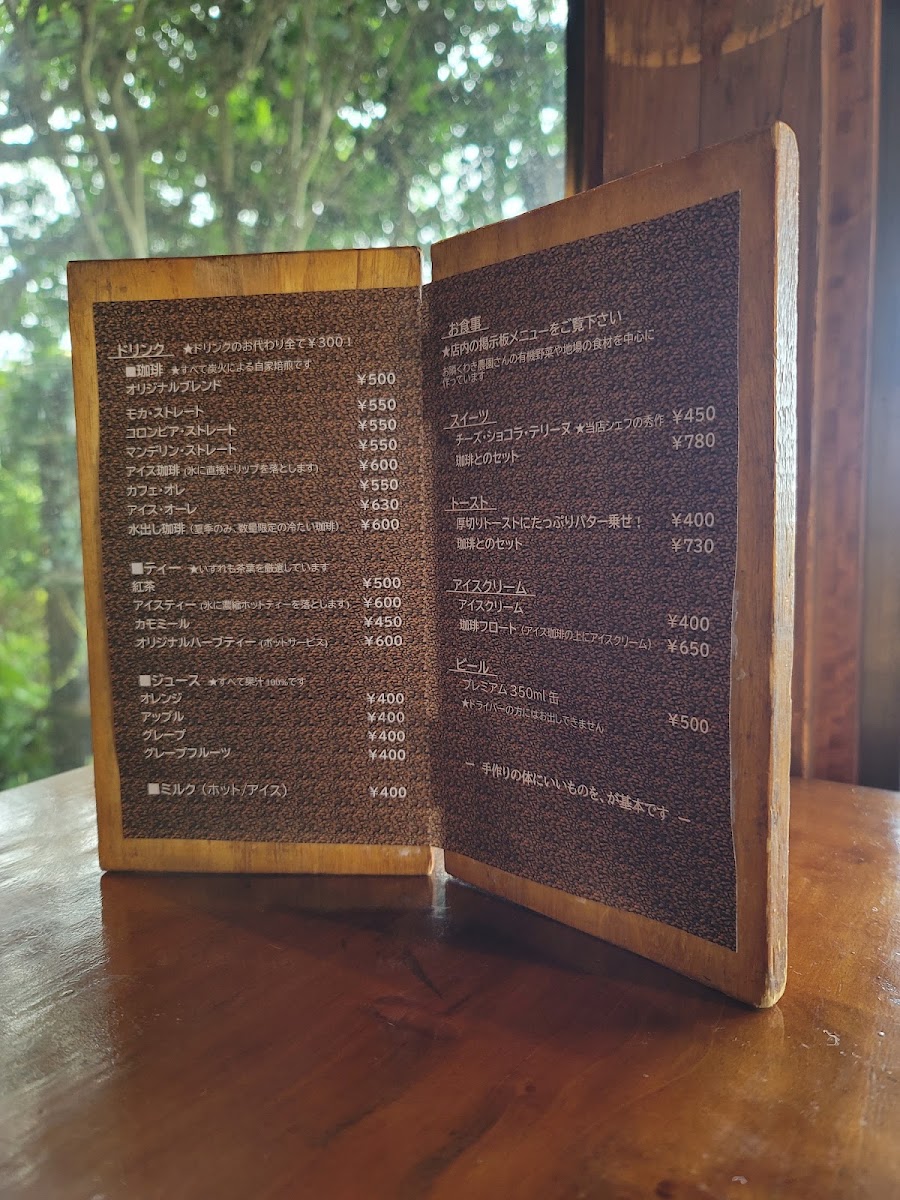 ドリンク ★ドリンクのお代わり全て¥300!
■珈琲 ★すべて炭火による自家焙煎です
オリジナルブレンド ¥500
モカ・ストレート ¥550
コロンビア・ストレート ¥550
マンデリン・ストレート ¥550
アイス珈琲 (氷に直接ドリップを落とします) ¥600
カフェ・オレ ¥550
アイス・オーレ ¥630
水出し珈琲 (夏季のみ、数量限定の冷たい珈琲) ¥600
■ティー ★いずれも茶葉を厳選しています
紅茶 ¥500
アイスティー (氷に濃縮ホットティーを落とします) ¥600
カモミール ¥450
オリジナルハーブティー (ポットサービス) ¥600
■ジュース ★すべて果汁100%です
オレンジ ¥400
アップル ¥400
グレープ ¥400
グレープフルーツ ¥400
■ミルク (ホット/アイス) ¥400
お食事
★店内の掲示板メニューをご覧下さい
お隣くわき農園さんの有機野菜や地場の食材を中心に
作っています
スイーツ
チーズ・ショコラ・テリーヌ ★当店シェフの秀作 ¥450
珈琲とのセット ¥780
トースト
厚切りトーストにたっぷりバター乗せ! ¥400
珈琲とのセット ¥730
アイスクリーム
アイスクリーム ¥400
珈琲フロート (アイス珈琲の上にアイスクリーム) ¥650
ビール
プレミアム 350ml 缶 ¥500
★ドライバーの方にはお出しできません
― 手作りの体にいいものを、が基本です ―